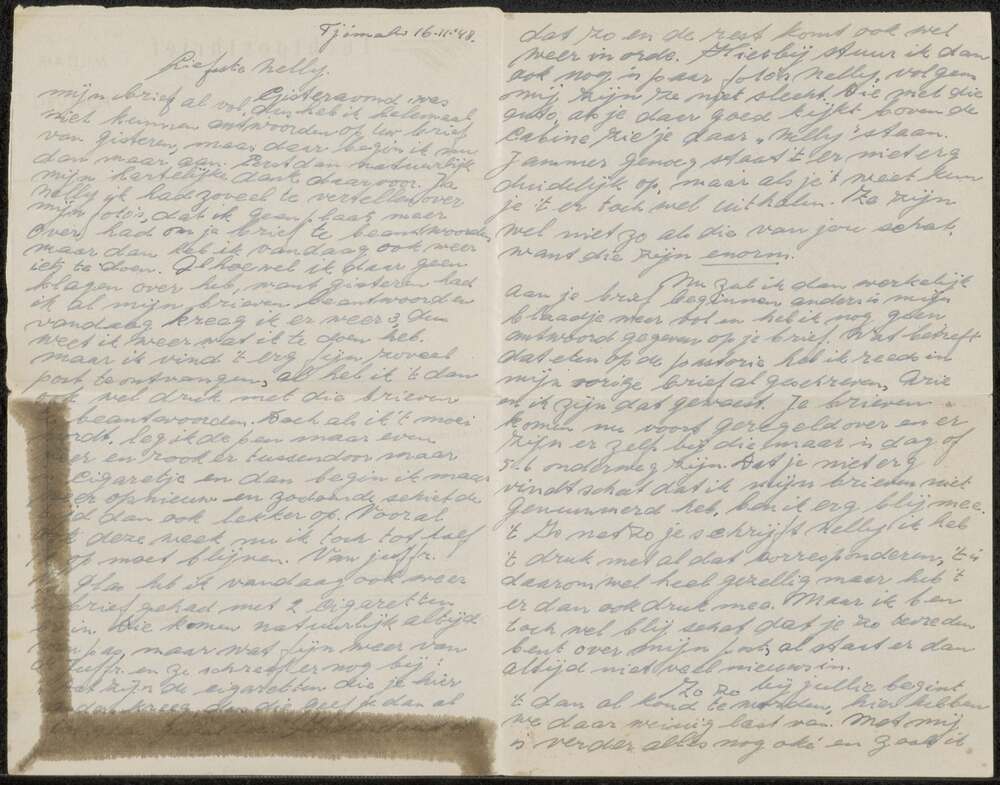 Tjimahi 16-11-'48.
Liefste Nelly.
Gisteravond was
mijn brief al vol, dus heb ik helemaal
niet kunnen antwoorden op uw brief
van gisteren, maar daar begin ik nu
dan maar aan. Eerst dan natuurlijk
mijn hartelijke dank daarvoor. Ja
Nelly ik had zoveel te vertellen over
mijn foto's, dat ik geen plaats meer
over had om je brief te beantwoorden
maar dan heb ik vandaag ook weer
iets te doen. Alhoewel ik daar geen
klagen over heb, want gisteren had
ik al mijn brieven beantwoord en
vandaag kreeg ik er weer 3, dus
weet ik weer wat ik te doen heb.
maar ik vind 't erg fijn zoveel
post te ontvangen, al heb ik 't dan
ook wel druk met die brieven
beantwoorden. Doch als ik 't moei
wordt, leg ik de pen maar even
er en rook er tussendoor maar
cigaretje en dan begin ik maar
opnieuw en zodoende schiet de
dan ook lekker op. Vooral
deze week nu ik toch tot half
op moet blijven. Van juffr.
Glas heb ik vandaag ook weer
brief gehad met 2 cigaretten
in. Die komen natuurlijk altijd
pas, maar wat fijn weer van
juffr. en ze schreef er nog bij:
zijn de cigaretten die je hier
kreeg, dan die geef je dan al
dat zo en de rest komt ook wel
weer in orde. Hierbij stuur ik dan
ook nog 'n paar foto's Nelly, volgens
mij zijn ze niet slecht. Die met die
auto, als je daar goed kijkt boven de
cabine zie je daar „Nelly" staan.
Jammer genoeg staat 't er niet erg
duidelijk op, maar als je 't weet kun
je 't er toch wel uithalen. Ze zijn
wel niet zo als die van jou schat,
want die zijn enorm.
Nu zal ik dan werkelijk
aan je brief beginnen anders is mijn
blaadje weer vol en heb ik nog geen
antwoord gegeven op je brief. Wat betreft
dat eten op de pastorie heb ik reeds in
mijn vorige brief al geschreven, Arie
en ik zijn dat geweest. Je brieven
komen nu voort geregeld over en er
zijn er zelfs bij die maar 'n dag of
5-6 onderweg zijn. Dat je niet erg
vindt schat dat ik mijn brieven niet
genummerd heb, ben ik erg blij mee.
't Zo net zo je schrijft Nelly ik heb
't druk met al dat corresponderen, 't is
daarom wel heel gezellig maar heb 't
er dan ook druk mee. Maar ik ben
toch wel blij schat dat je zo tevreden
bent over mijn post, al staat er dan
altijd niet veel nieuws in.
Zo zo bij jullie begint
't dan al koud te worden, hier hebben
we daar weinig last van. Met mij
is verder alles nog oké en zoals ik